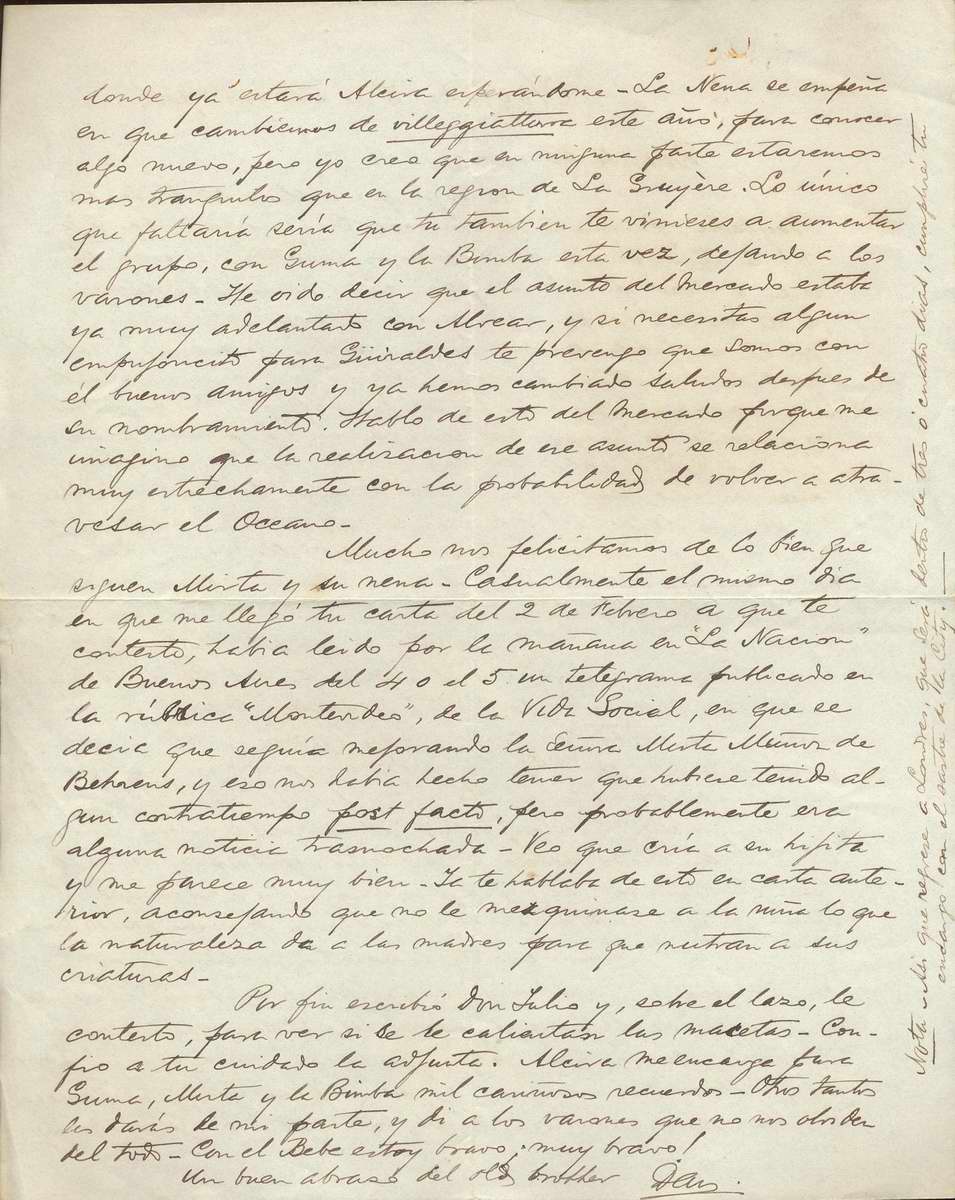 donde ya estará Alcira esperándome - La Nena se empeña
en que cambiemos de villeggiattura este año, para conocer
algo nuevo, pero yo creo que en ninguna parte estaremos
mas tranquilos que en la region de La Gruyère. Lo único
que faltaría sería que tu tambien te vinieses a aumentar
el grupo, con Guma y la Bimba esta vez, dejando a los
varones - He oido decir que el asunto del Mercado estaba
ya muy adelantado con Alvear, y si necesitas algun
empujoncito para Güiraldes te prevengo que somos con
él buenos amigos y ya hemos cambiado saludos despues de
su nombramiento. Hablo de esto del Mercado porque me
imagino que la realizacion de ese asunto se relaciona
muy estrechamente con la probabilidad de volver a atra-
vesar el Oceano -
Mucho nos felicitamos de lo bien que
siguen Mirta y su nena - Casualmente el mismo dia
en que me llegó tu carta del 2 de Febrero a que te
contesto, habia leido por la mañana en "La Nacion"
de Buenos Aires del 4 o el 5 un telegrama publicado en
la rúbrica "Montevideo", de la Vida Social, en que se
decia que seguía mejorando la Señora Mirta Muñoz de
Behrens, y eso nos habia hecho temer que hubiese tenido al-
gun contratiempo post facto, pero probablemente era
alguna noticia trasnochada - Veo que cría a su hijita
y me parece muy bien - Ya te hablaba de esto en carta ante-
rior, aconsejando que no le mezquinase a la niña lo que
la naturaleza da a las madres para que nutran a sus
criaturas -
Por fin escribió Don Julio y, sobre el lazo, le
contesto, para ver si se le calientan las macetas - Con-
fio a tu cuidado la adjunta. Alcira me encarga para
Guma, Mirta y la Bimba mil cariñosos recuerdos - Otros tantos
les darás de mi parte, y di a los varones que no nos olviden
del todo - Con el Bebe estoy bravo, ¡muy bravo!
Un buen abrazo del old brother Dan.
Nota - Asi que regrese a Londres, que será dentro de tres ó cuatro dias, cumpliré tu
encargo con el sastre de la City.